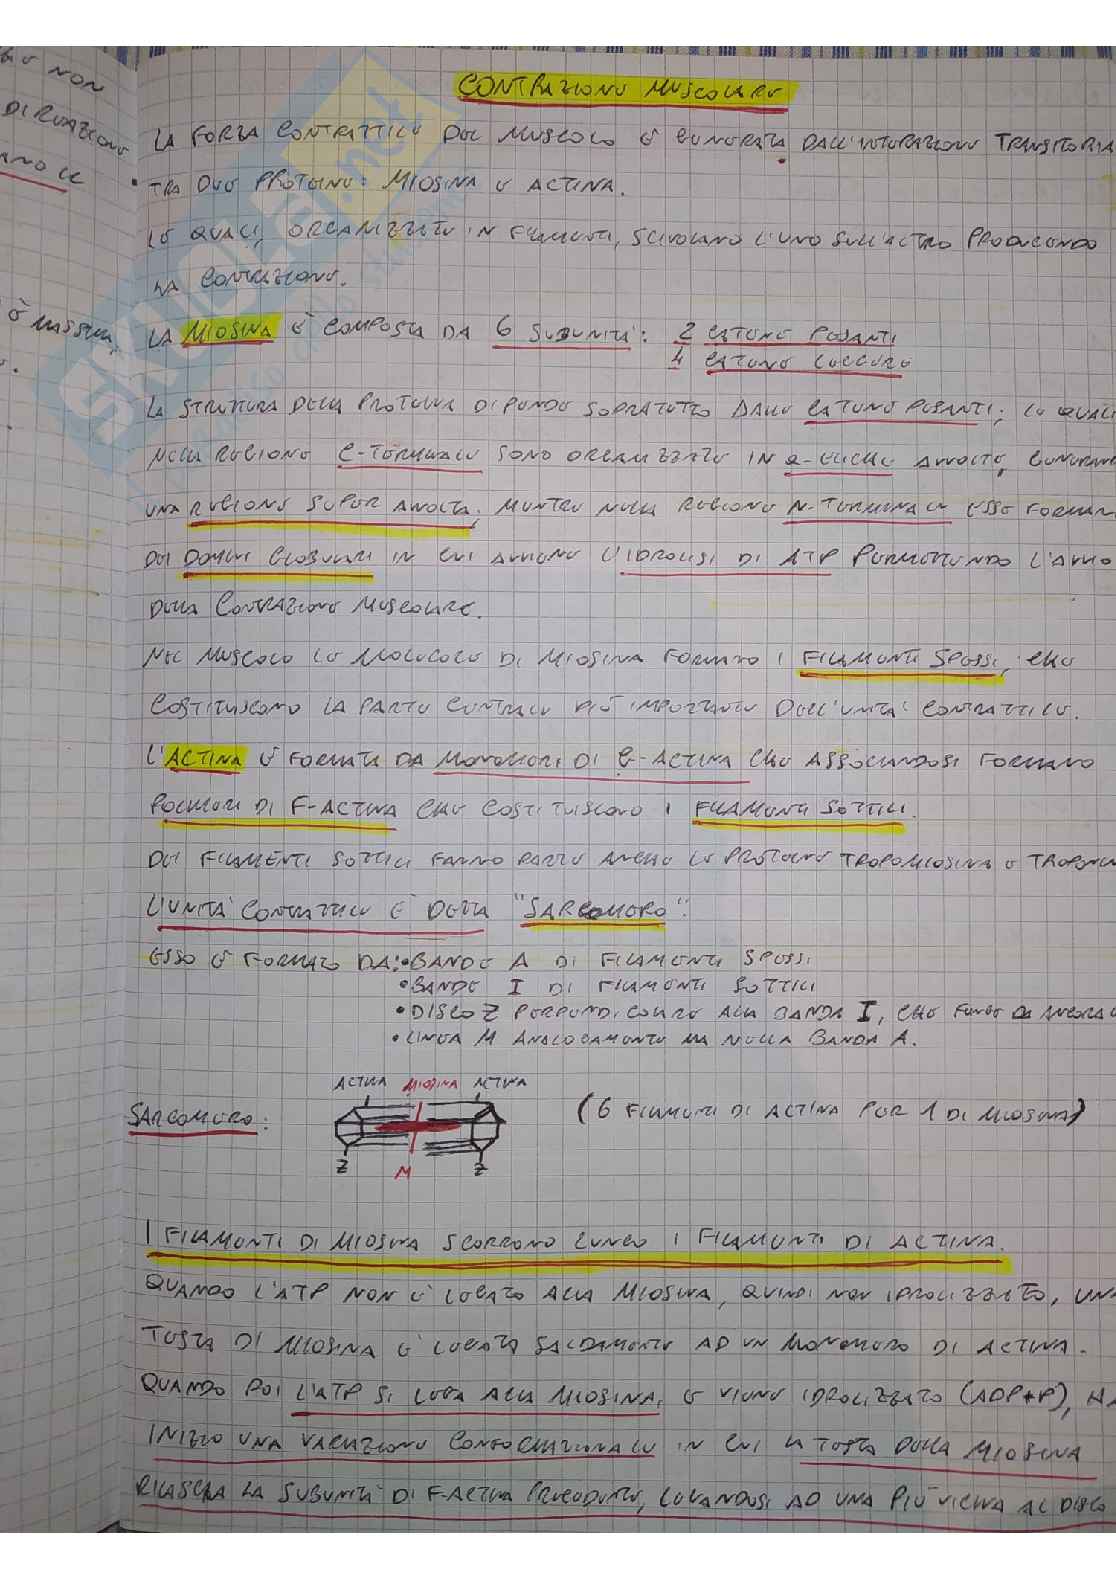 CONTRAZIONE MUSCOLARE
LA FORZA CONTRATTILE DEL MUSCOLO È GENERATA DALL'INTERAZIONE TRANSITORIA
TRA DUE PROTEINE: MIOSINA E ACTINA.
LE QUALI, ORGANIZZATE IN FILAMENTI, SCIVOLANO L'UNO SULL'ALTRO PRODUCENDO
LA CONTRAZIONE.
LA MIOSINA È COMPOSTA DA 6 SUBUNITÀ: 2 CATENE PESANTI
4 CATENE LEGGERE
LA STRUTTURA DELLA PROTEINA DIPENDE SOPRATUTTO DALLE CATENE PESANTI; LE QUALI
NELLA REGIONE C-TERMINALE SONO ORGANIZZATE IN α-ELICHE AVVOLTE,
UNA REGIONE SUPER AVVOLTA; MENTRE NELLA REGIONE N-TERMINALE ESSE
DEI DOMINI GLOBULARI IN CUI AVVIENE L'IDROLISI DI ATP PERMETTENDO L'AVVIO
DELLA CONTRAZIONE MUSCOLARE.
NEL MUSCOLO LE MOLECOLE DI MIOSINA FORMANO I FILAMENTI SPESSI, CHE
COSTITUISCONO LA PARTE CENTRALE PIÙ IMPORTANTE DELL'UNITÀ CONTRATTILE.
L'ACTINA È FORMATA DA MONOMERI DI G-ACTINA CHE ASSOCIANDOSI FORMANO
POLIMERI DI F-ACTINA CHE COSTITUISCONO I FILAMENTI SOTTILI.
DEI FILAMENTI SOTTILI FANNO PARTE ANCHE LE PROTEINE TROPOMIOSINA E
L'UNITÀ CONTRATTILE È DETTA "SARCOMERO".
ESSO È FORMATO DA: • BANDE A DI FILAMENTI SPESSI
• BANDE I DI FILAMENTI SOTTILI
• DISCO Z PERPENDICOLARE ALLA BANDA I, CHE FUNGE DA
• LINEA M ANALOGAMENTE MA NELLA BANDA A.
ACTINA MIOSINA ACTINA
SARCOMERO: (6 FILAMENTI DI ACTINA PER 1 DI MIOSINA)
Z M Z
I FILAMENTI DI MIOSINA SCORRONO LUNGO I FILAMENTI DI ACTINA.
QUANDO L'ATP NON È LEGATO ALLA MIOSINA, QUINDI NON IDROLIZZATO, UNA
TESTA DI MIOSINA È LEGATA SALDAMENTE AD UN MONOMERO DI ACTINA.
QUANDO POI L'ATP SI LEGA ALLA MIOSINA, E VIENE IDROLIZZATO (ADP+P), HA
INIZIO UNA VARIAZIONE CONFORMAZIONALE IN CUI LA TESTA DELLA MIOSINA
RILASCIA LA SUBUNITÀ DI F-ACTINA PRECEDENTE, LEGANDOSI AD UNA PIÙ VICINA AL DISCO